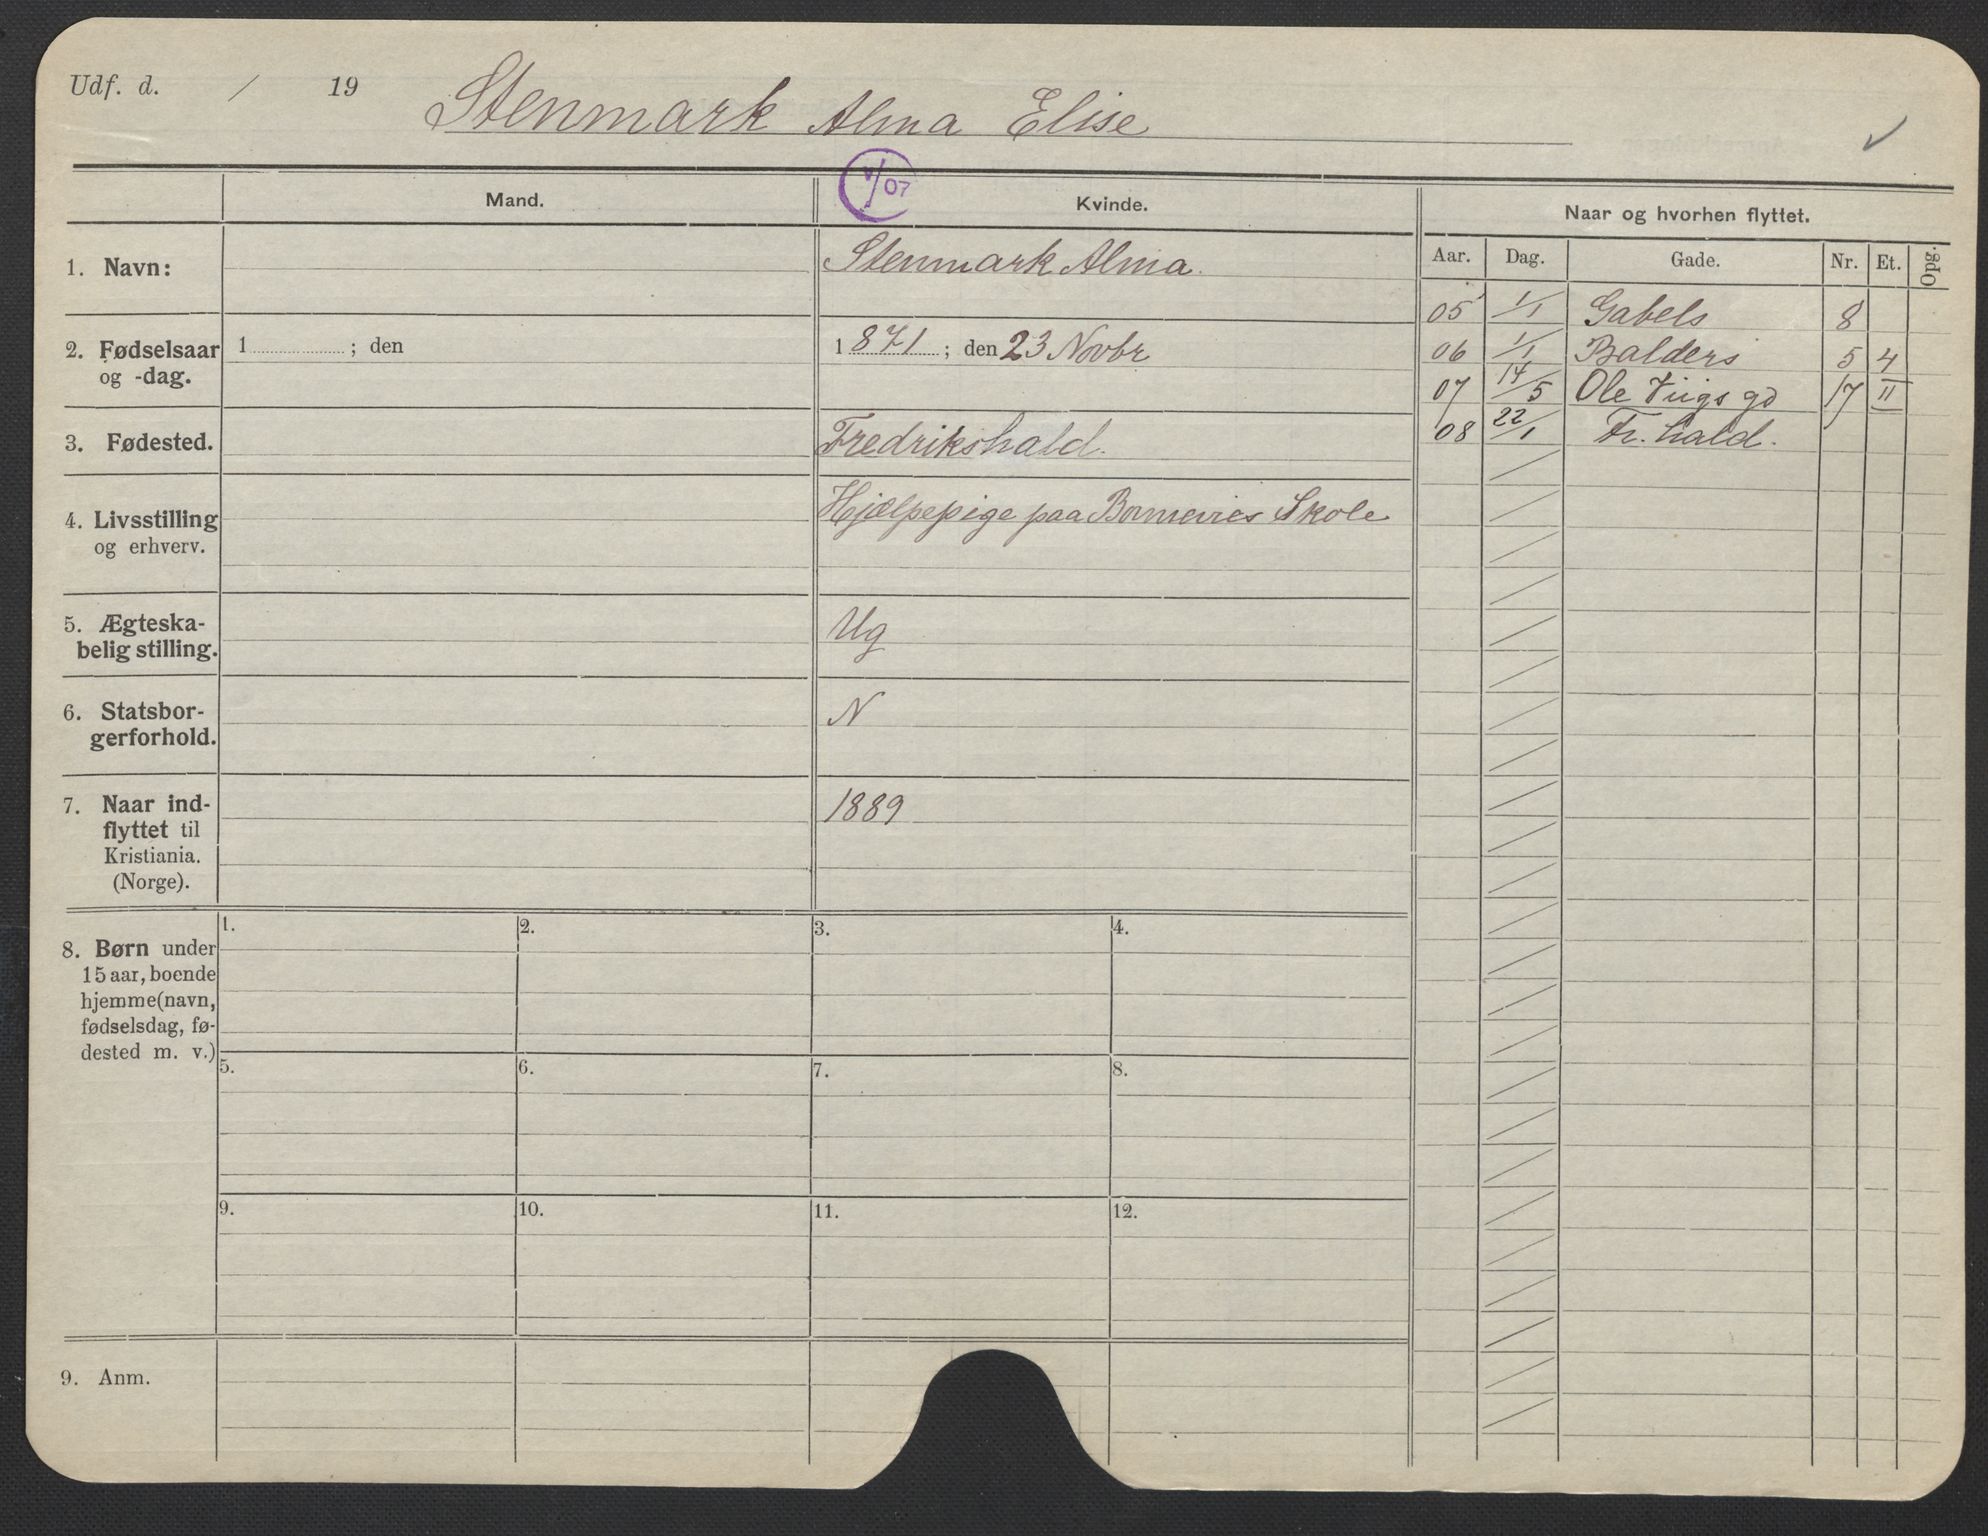 Udf. d. / 19 Stenmark Alma Elise
V/07
Mand. Kvinde. Naar og hvorhen flyttet.
Aar. Dag. Gade. Nr. Et. Opg.
1. Navn: Stenmark Alma.
05 1/1 Gabels 8
2. Fødselsaar og -dag. 1 ; den 1871; den 23 Novbr
06 1/1 Balders 5 4
07 14/5 Ole Viigs gd 17 II
3. Fødested. Fredrikshald.
08 22/1 Fr. hald.
4. Livsstilling og erhverv. Hjælpepige paa Skole
5. Ægteska-
belig stilling. Ug
6. Statsbor-
gerforhold. N
7. Naar ind-
flyttet til
Kristiania.
(Norge). 1889
8. Børn under
15 aar, boende
hjemme (navn,
fødselsdag, fø-
dested m. v.)
1. 2. 3. 4.
5. 6. 7. 8.
9. 10. 11. 12.
9. Anm.